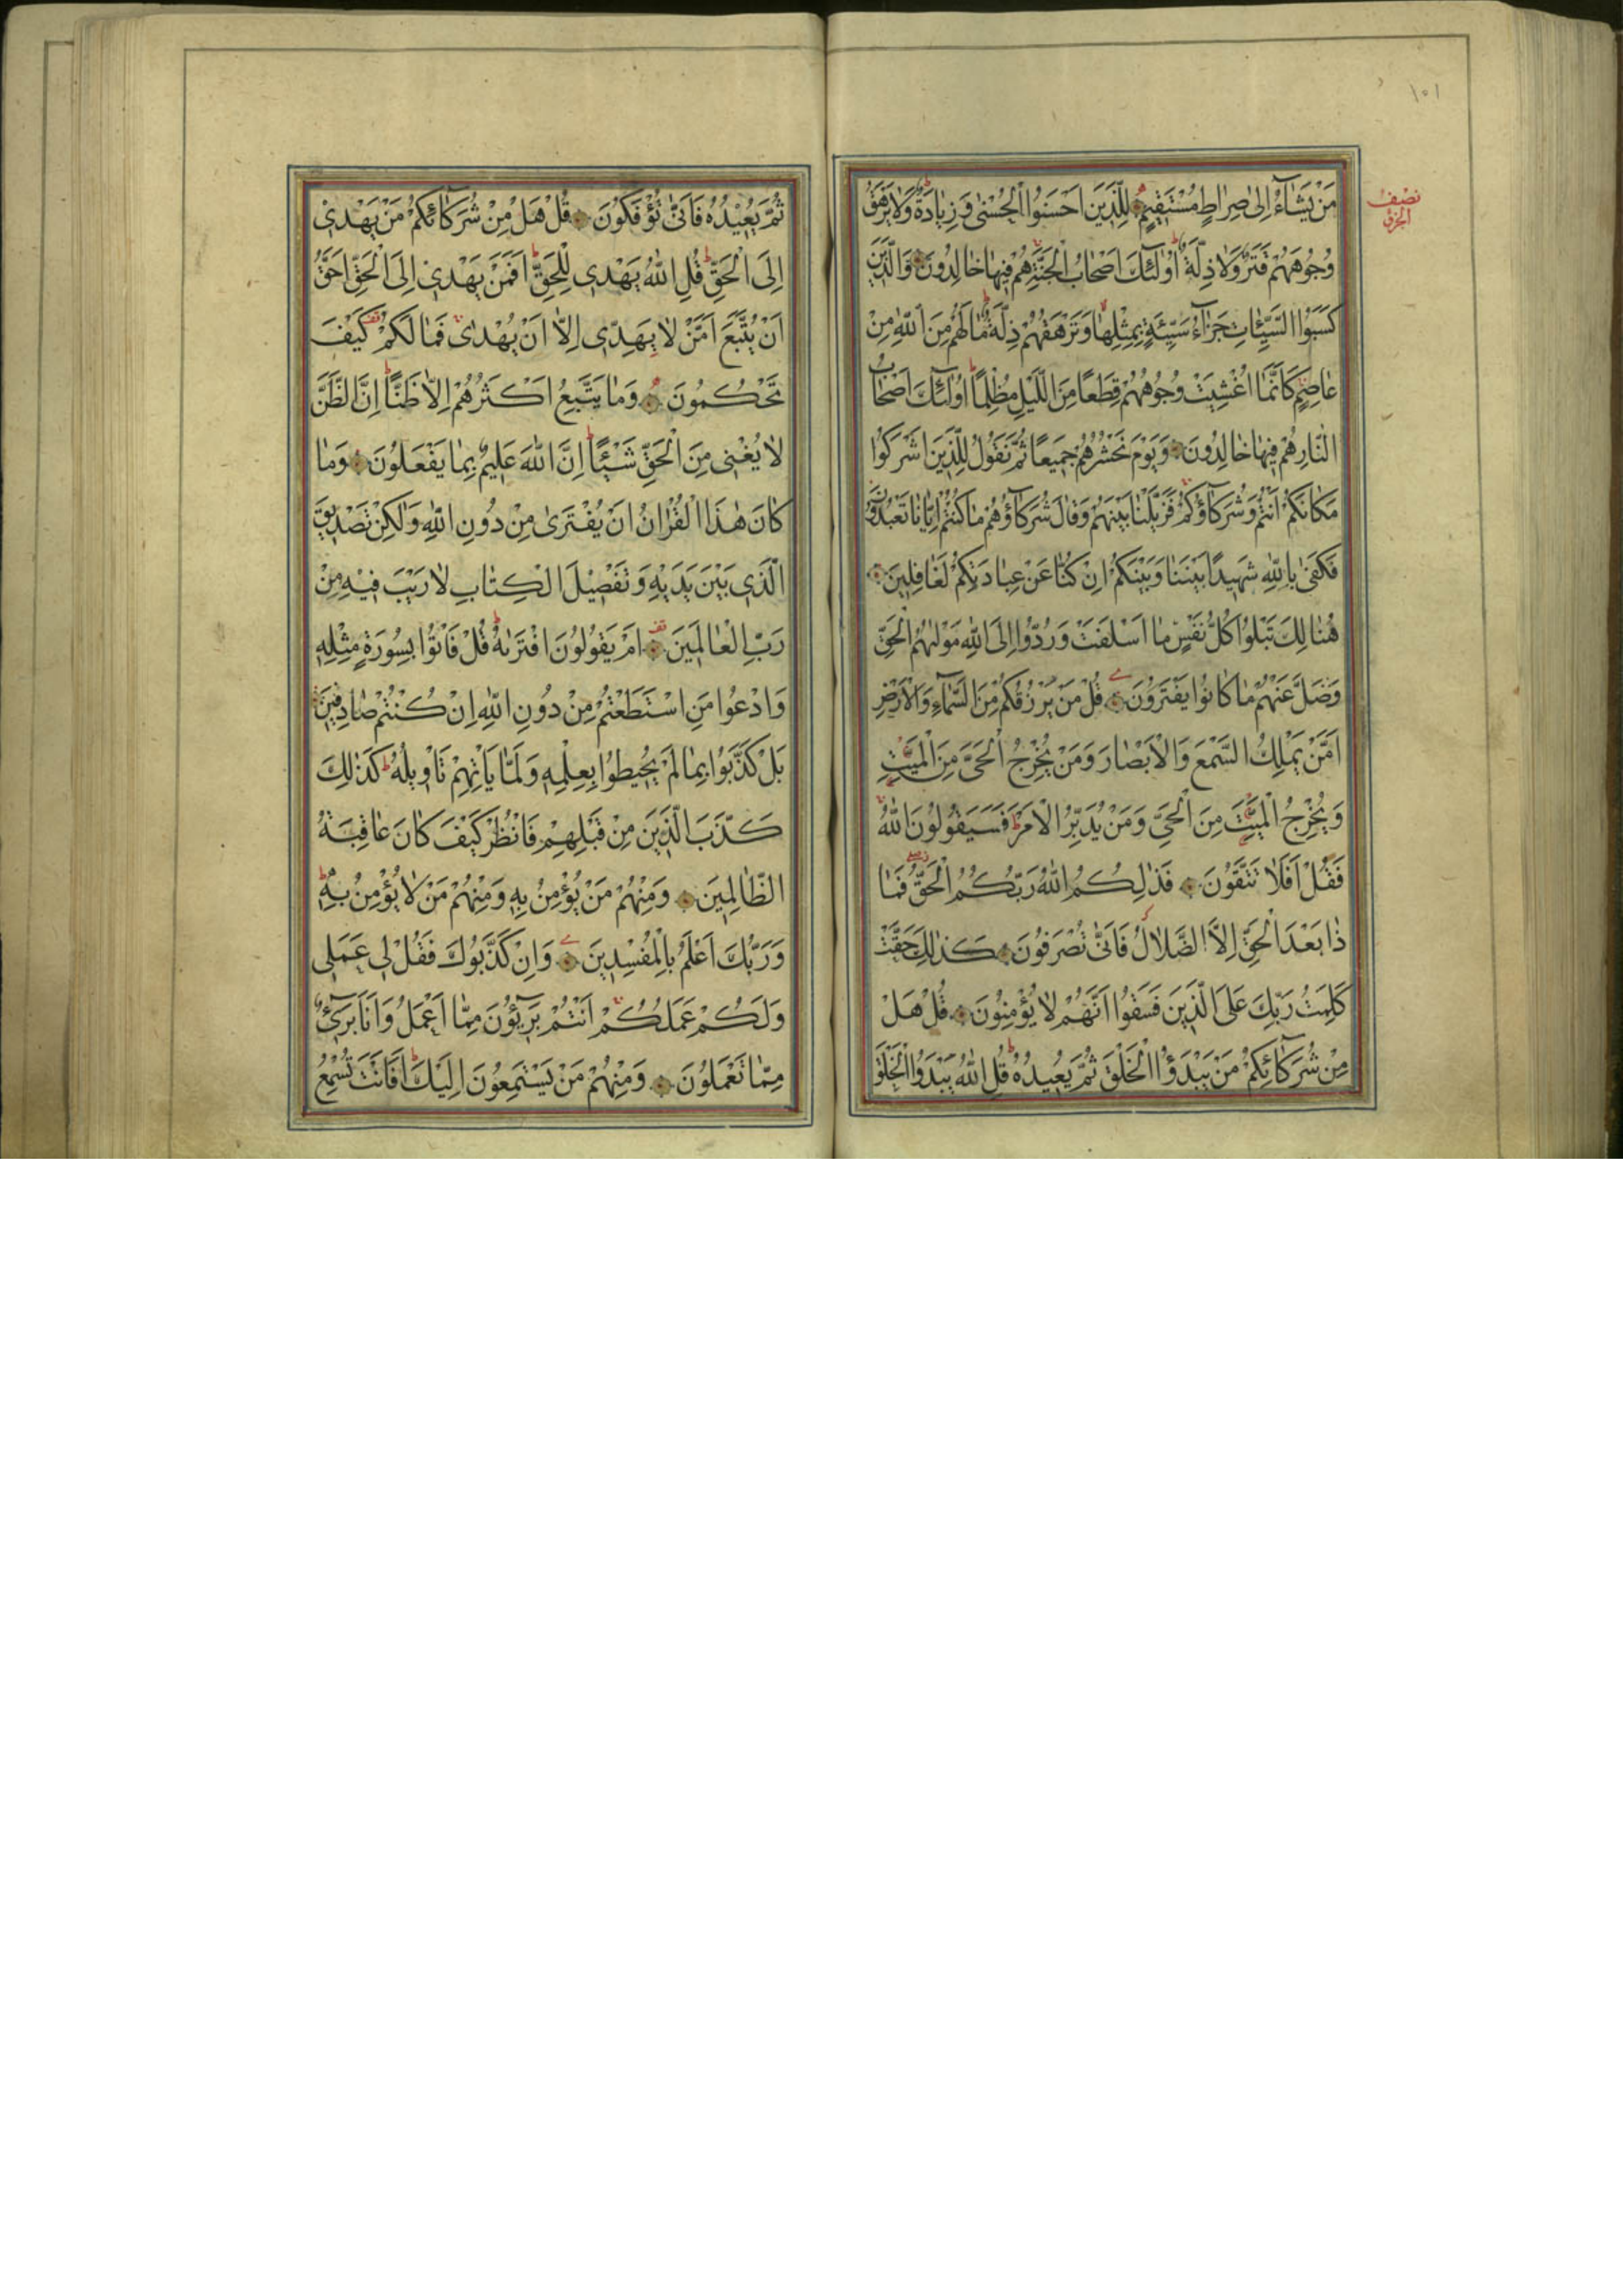 ١٥١
نصف
الجزؤ
مَنْ يَشَآءُ اِلٰى صِرَاطٍ مُسْتَقِيمٍ لِلَّذِينَ اَحْسَنُوا الْحُسْنٰى وَ زِيَادَةٌ وَلَا يَرْهَقُ
وُجُوهَهُمْ قَتَرٌ وَلَا ذِلَّةٌ اُولٰئِكَ اَصْحَابُ الْجَنَّةِ هُمْ فِيهَا خَالِدُونَ وَالَّذِينَ
كَسَبُوا السَّيِّئَاتِ جَزَآءُ سَيِّئَةٍ بِمِثْلِهَا وَتَرْهَقُهُمْ ذِلَّةٌ مَا لَهُمْ مِنَ اللّٰهِ مِنْ
عَاصِمٍ كَاَنَّمَا اُغْشِيَتْ وُجُوهُهُمْ قِطَعًا مِنَ اللَّيْلِ مُظْلِمًا اُولٰئِكَ اَصْحَابُ
النَّارِ هُمْ فِيهَا خَالِدُونَ وَيَوْمَ نَحْشُرُهُمْ جَمِيعًا ثُمَّ نَقُولُ لِلَّذِينَ اَشْرَكُوا
مَكَانَكُمْ اَنْتُمْ وَشُرَكَآؤُكُمْ فَزَيَّلْنَا بَيْنَهُمْ وَقَالَ شُرَكَآؤُهُمْ مَا كُنْتُمْ اِيَّانَا تَعْبُدُونَ
فَكَفٰى بِاللّٰهِ شَهِيدًا بَيْنَنَا وَبَيْنَكُمْ اِنْ كُنَّا عَنْ عِبَادَتِكُمْ لَغَافِلِينَ
هُنَالِكَ تَبْلُوا كُلُّ نَفْسٍ مَا اَسْلَفَتْ وَرُدُّوا اِلَى اللّٰهِ مَوْلٰيهُمُ الْحَقِّ
وَضَلَّ عَنْهُمْ مَا كَانُوا يَفْتَرُونَ قُلْ مَنْ يَرْزُقُكُمْ مِنَ السَّمَآءِ وَالْاَرْضِ
اَمَّنْ يَمْلِكُ السَّمْعَ وَالْاَبْصَارَ وَمَنْ يُخْرِجُ الْحَىَّ مِنَ الْمَيِّتِ
وَيُخْرِجُ الْمَيِّتَ مِنَ الْحَيِّ وَمَنْ يُدَبِّرُ الْاَمْرَ فَسَيَقُولُونَ اللّٰهُ
فَقُلْ اَفَلَا تَتَّقُونَ فَذٰلِكُمُ اللّٰهُ رَبُّكُمُ الْحَقُّ فَمَا
ذَا بَعْدَ الْحَقِّ اِلَّا الضَّلَالُ فَاَنّٰى تُصْرَفُونَ كَذٰلِكَ حَقَّتْ
كَلِمَتُ رَبِّكَ عَلَى الَّذِينَ فَسَقُوا اَنَّهُمْ لَا يُؤْمِنُونَ قُلْ هَلْ
مِنْ شُرَكَآئِكُمْ مَنْ يَبْدَؤُا الْخَلْقَ ثُمَّ يُعِيدُهُ قُلِ اللّٰهُ يَبْدَؤُا الْخَلْقَ
ثُمَّ يُعِيْدُهُ فَاَنّٰى تُؤْفَكُونَ قُلْ هَلْ مِنْ شُرَكَآئِكُمْ مَنْ يَهْدِىْ
اِلَى الْحَقِّ قُلِ اللّٰهُ يَهْدِى لِلْحَقِّ اَفَمَنْ يَهْدِىْ اِلَى الْحَقِّ اَحَقُّ
اَنْ يُتَّبَعَ اَمَّنْ لَا يَهِدِّى اِلَّا اَنْ يُهْدٰى فَمَا لَكُمْ كَيْفَ
تَحْكُمُونَ وَمَا يَتَّبِعُ اَكْثَرُهُمْ اِلَّا ظَنًّا اِنَّ الظَّنَّ
لَا يُغْنِى مِنَ الْحَقِّ شَيْئًا اِنَّ اللّٰهَ عَلِيمٌ بِمَا يَفْعَلُونَ وَمَا
كَانَ هٰذَا الْقُرْاٰنُ اَنْ يُفْتَرٰى مِنْ دُونِ اللّٰهِ وَلٰكِنْ تَصْدِيقَ
الَّذِى بَيْنَ يَدَيْهِ وَتَفْصِيْلَ الْكِتَابِ لَا رَيْبَ فِيْهِ مِنْ
رَبِّ الْعَالَمِينَ اَمْ يَقُولُونَ افْتَرٰيهُ قُلْ فَاْتُوا بِسُورَةٍ مِثْلِهِ
وَادْعُوا مَنِ اسْتَطَعْتُمْ مِنْ دُونِ اللّٰهِ اِنْ كُنْتُمْ صَادِقِينَ
بَلْ كَذَّبُوا بِمَا لَمْ يُحِيطُوا بِعِلْمِهِ وَلَمَّا يَاْتِهِمْ تَاْوِيلُهُ كَذٰلِكَ
كَذَّبَ الَّذِينَ مِنْ قَبْلِهِمْ فَانْظُرْ كَيْفَ كَانَ عَاقِبَةُ
الظَّالِمِينَ وَمِنْهُمْ مَنْ يُؤْمِنُ بِهِ وَمِنْهُمْ مَنْ لَا يُؤْمِنُ بِهِ
وَرَبُّكَ اَعْلَمُ بِالْمُفْسِدِينَ وَاِنْ كَذَّبُوكَ فَقُلْ لِى عَمَلِى
وَلَكُمْ عَمَلُكُمْ اَنْتُمْ بَرِيْئُونَ مِمَّا اَعْمَلُ وَاَنَا بَرِىْءٌ
مِمَّا تَعْمَلُونَ وَمِنْهُمْ مَنْ يَسْتَمِعُونَ اِلَيْكَ اَفَاَنْتَ تُسْمِعُ